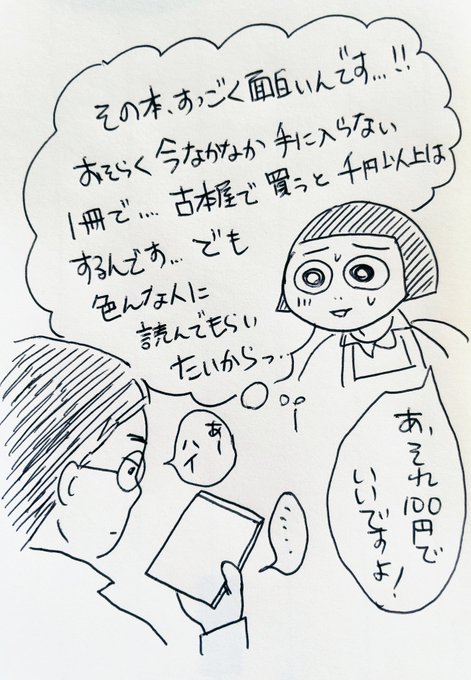 その本、すっごく面白いんです…!!
おそらく今なかなか手に入らない
1冊で…. 古本屋で買うと千円以上は
するんです… でも
色んな人に
読んでもらい
たいからっ…
あ、それ100円で
いいですよ!
あー
ハイ
.....